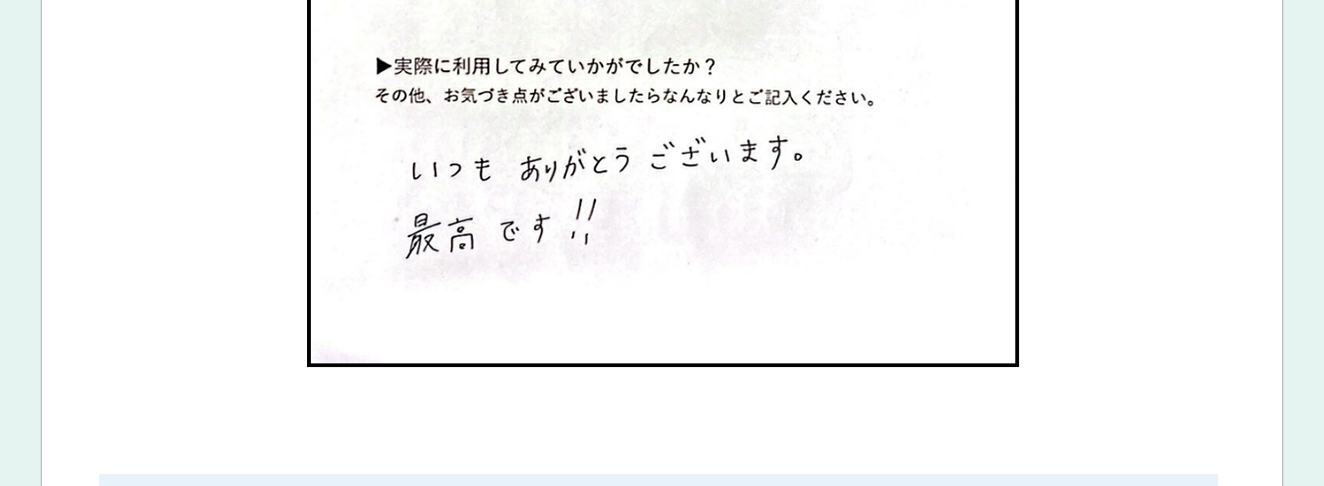 ▶実際に利用してみていかがでしたか？
その他、お気づき点がございましたらなんなりとご記入ください。
いつも ありがとう ございます。
最高 です!!